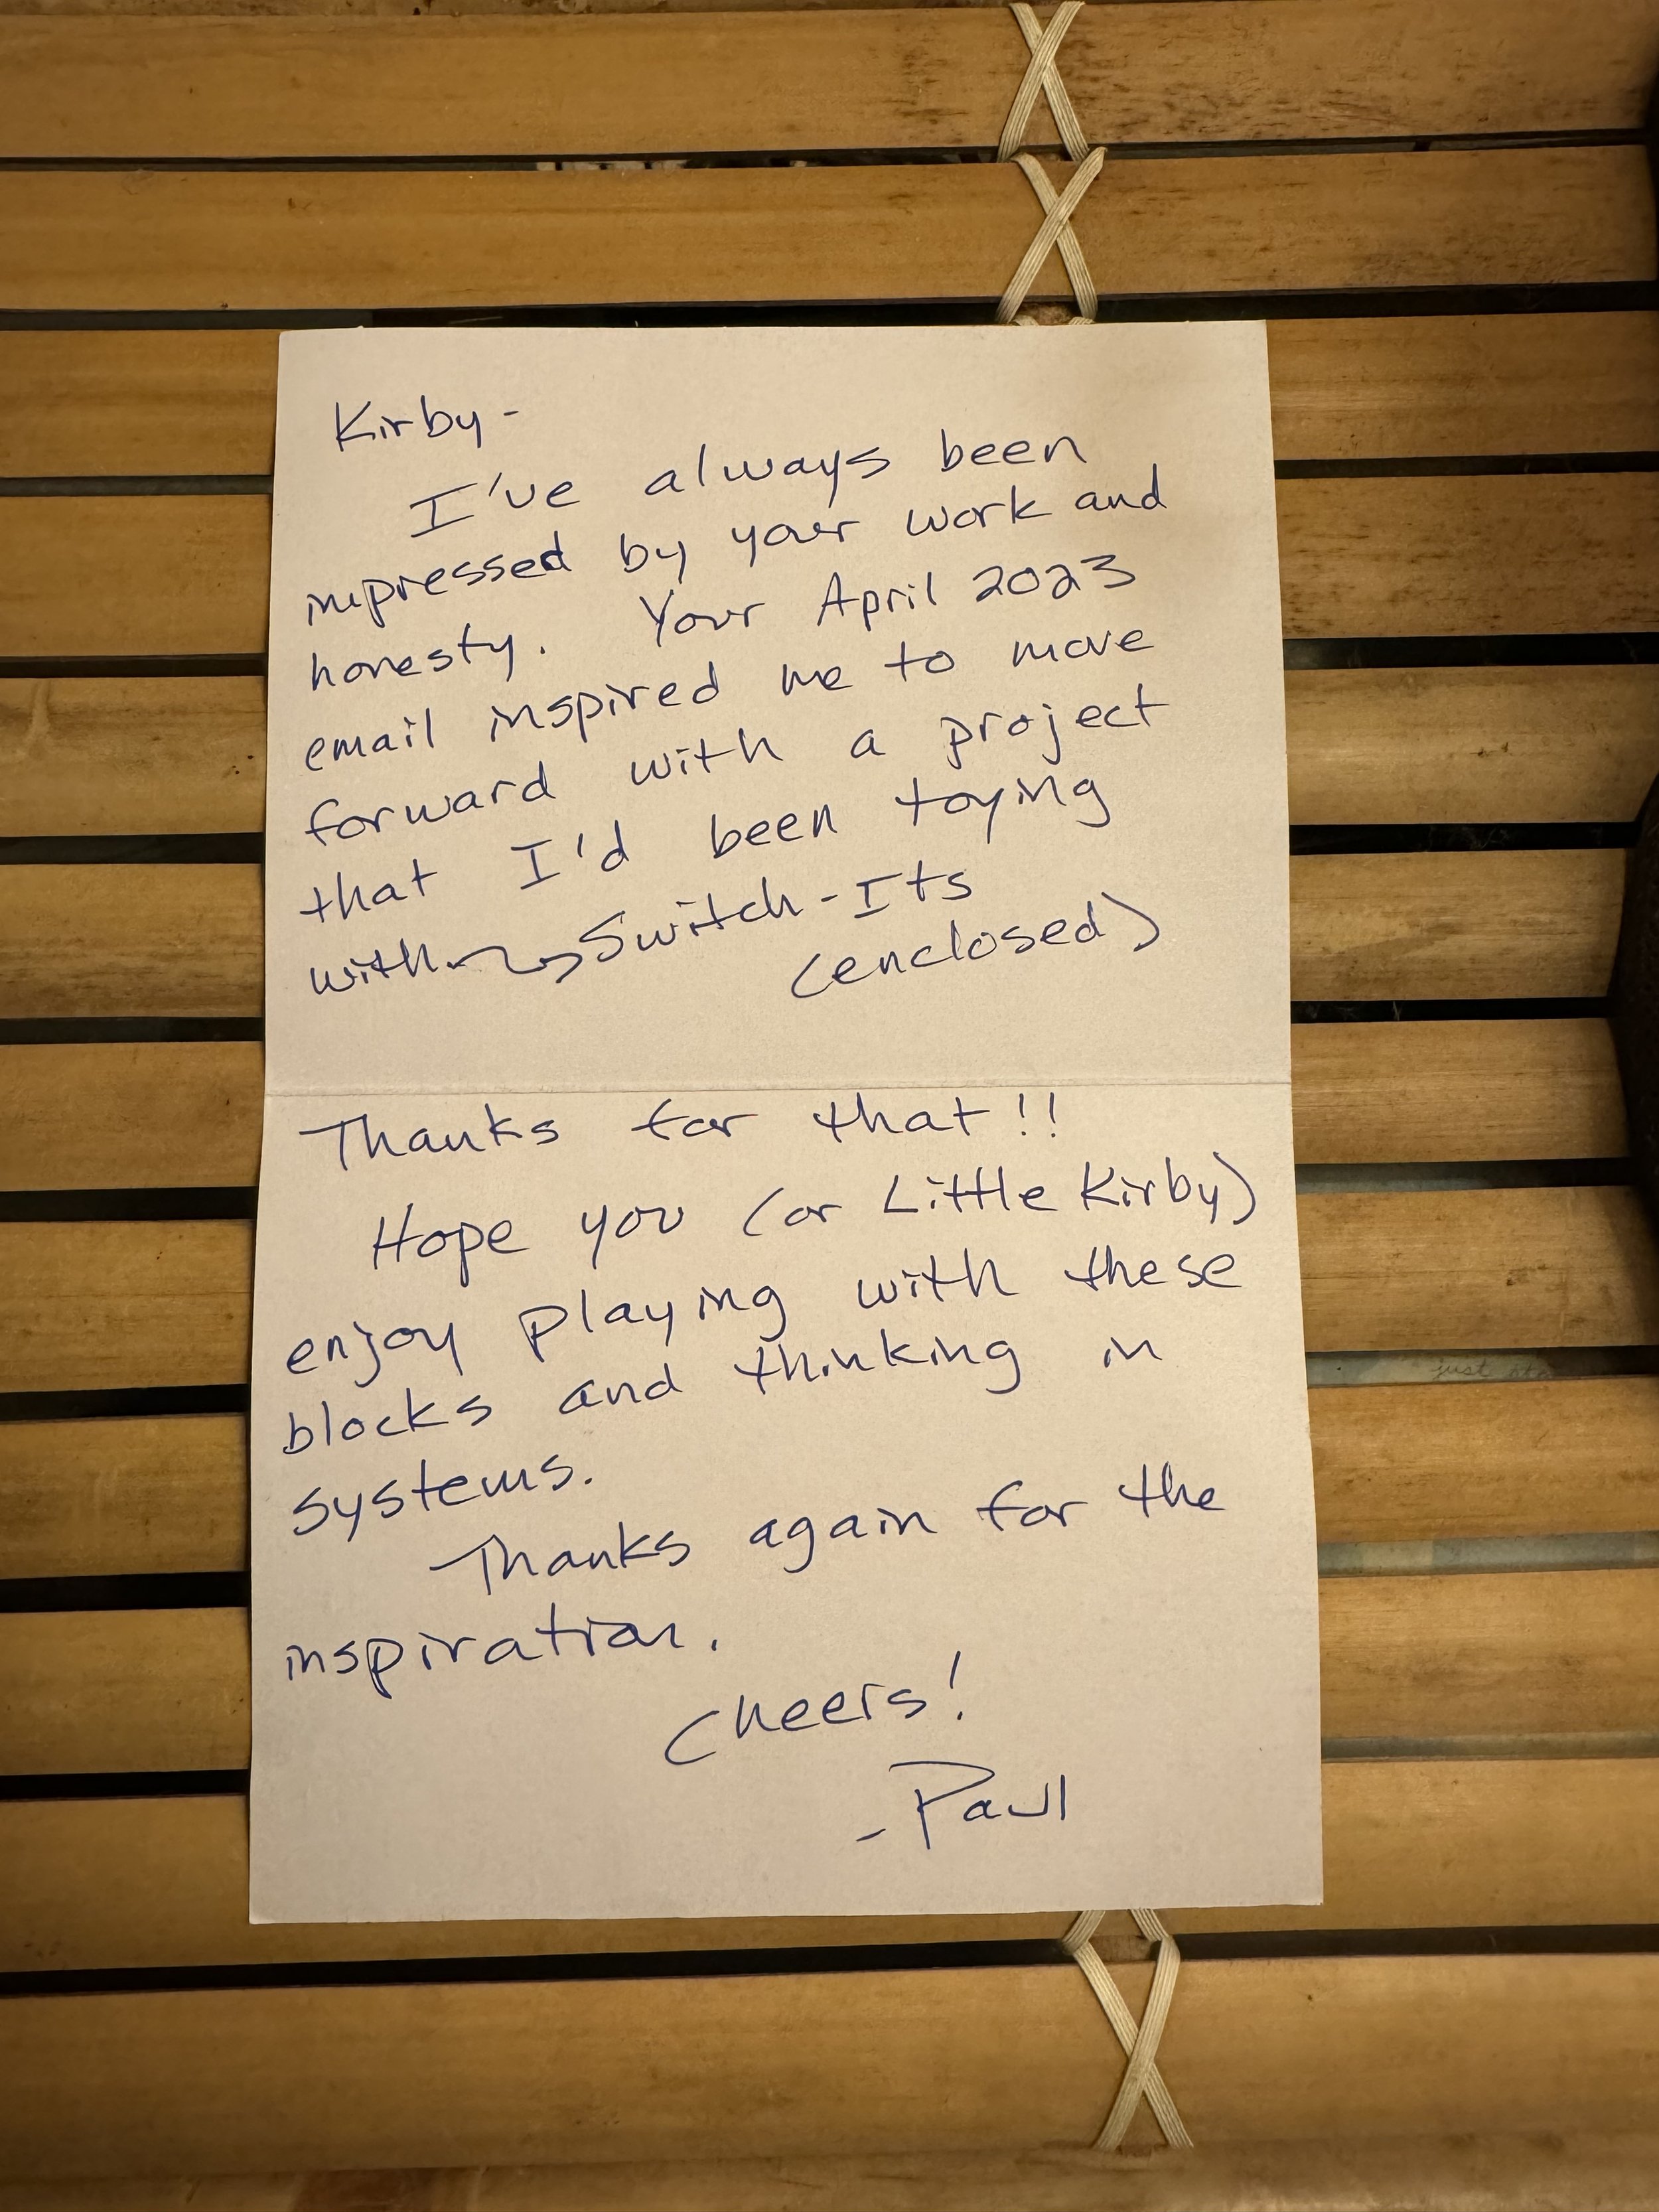 Kirby-
I've always been
impressed by your work and
honesty. Your April 2023
email inspired me to move
forward with a project
that I'd been toying
with Switch-Its
(enclosed)
Thanks for that!!
Hope you (or Little Kirby)
enjoy playing with these
blocks and thinking in
systems.
Thanks again for the
inspiration.
Cheers!
-Paul
just